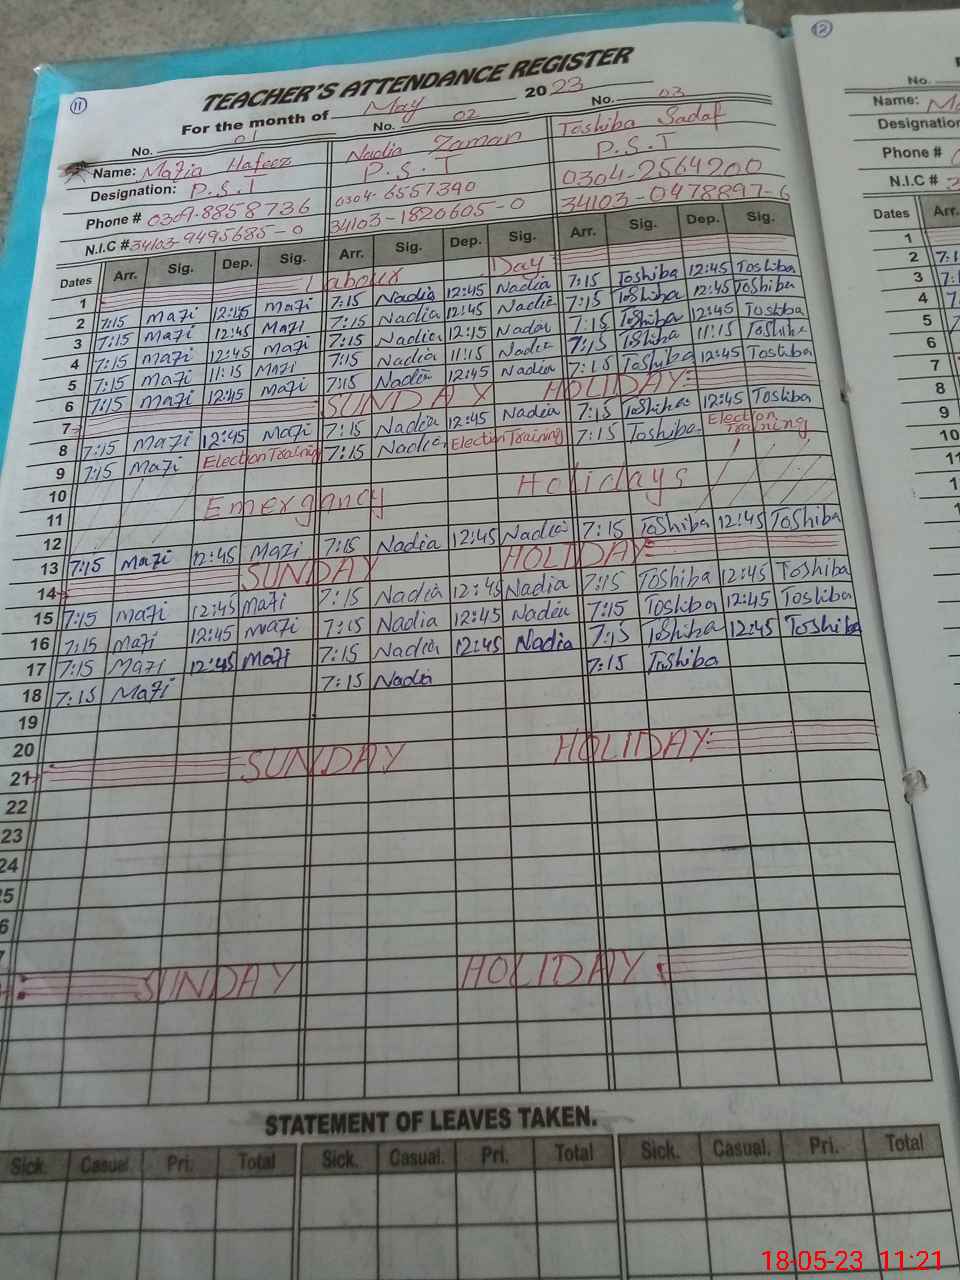 11
TEACHER'S ATTENDANCE REGISTER
For the month of May 2023
No. 01 No. 02 No. 03
Name: Mazia Hafeez Nadia Zaman Toshiba Sadaf
Designation: P.S.T P.S.T P.S.T
Phone # 0309-8858736 0304-6557390 0304-2564200
N.I.C # 34103-9495685-0 34103-1820605-0 34103-0478897-6
Dates Arr. Sig. Dep. Sig. Arr. Sig. Dep. Sig. Arr. Sig. Dep. Sig.
1 Labour Day
2 7:15 Mazi 12:45 Mazi 7:15 Nadia 12:45 Nadia 7:15 Toshiba 12:45 Toshiba
3 7:15 Mazi 12:45 Mazi 7:15 Nadia 12:45 Nadia 7:15 Toshiba 12:45 Toshiba
4 7:15 Mazi 12:45 Mazi 7:15 Nadia 12:15 Nadia 7:15 Toshiba 12:45 Toshiba
5 7:15 Mazi 11:15 Mazi 7:15 Nadia 11:15 Nadia 7:15 Toshiba 11:15 Toshiba
6 7:15 Mazi 12:45 Mazi 7:15 Nadia 12:45 Nadia 7:15 Toshiba 12:45 Toshiba
7 SUNDAY HOLIDAY
8 7:15 Mazi 12:45 Mazi 7:15 Nadia 12:45 Nadia 7:15 Toshiba 12:45 Toshiba
9 7:15 Mazi Election Training 7:15 Nadia Election Training 7:15 Toshiba Election Training
10
11 Emergancy Holidays
12
13 7:15 Mazi 12:45 Mazi 7:15 Nadia 12:45 Nadia 7:15 Toshiba 12:45 Toshiba
14 SUNDAY HOLIDAY
15 7:15 Mazi 12:45 Mazi 7:15 Nadia 12:45 Nadia 7:15 Toshiba 12:45 Toshiba
16 7:15 Mazi 12:45 Mazi 7:15 Nadia 12:45 Nadia 7:15 Toshiba 12:45 Toshiba
17 7:15 Mazi 12:45 Mazi 7:15 Nadia 12:45 Nadia 7:15 Toshiba 12:45 Toshiba
18 7:15 Mazi 7:15 Nadia 7:15 Toshiba
19
20
21 SUNDAY HOLIDAY
22
23
24
25
6
7
SUNDAY HOLIDAY
STATEMENT OF LEAVES TAKEN.
Sick. Casual. Pri. Total Sick. Casual. Pri. Total Sick. Casual. Pri. Total
12
No.
Name:
Designation
Phone #
N.I.C #
Dates Arr.
1
2
3
4
5
6
7
8
9
10
11
18-05-23 11:21